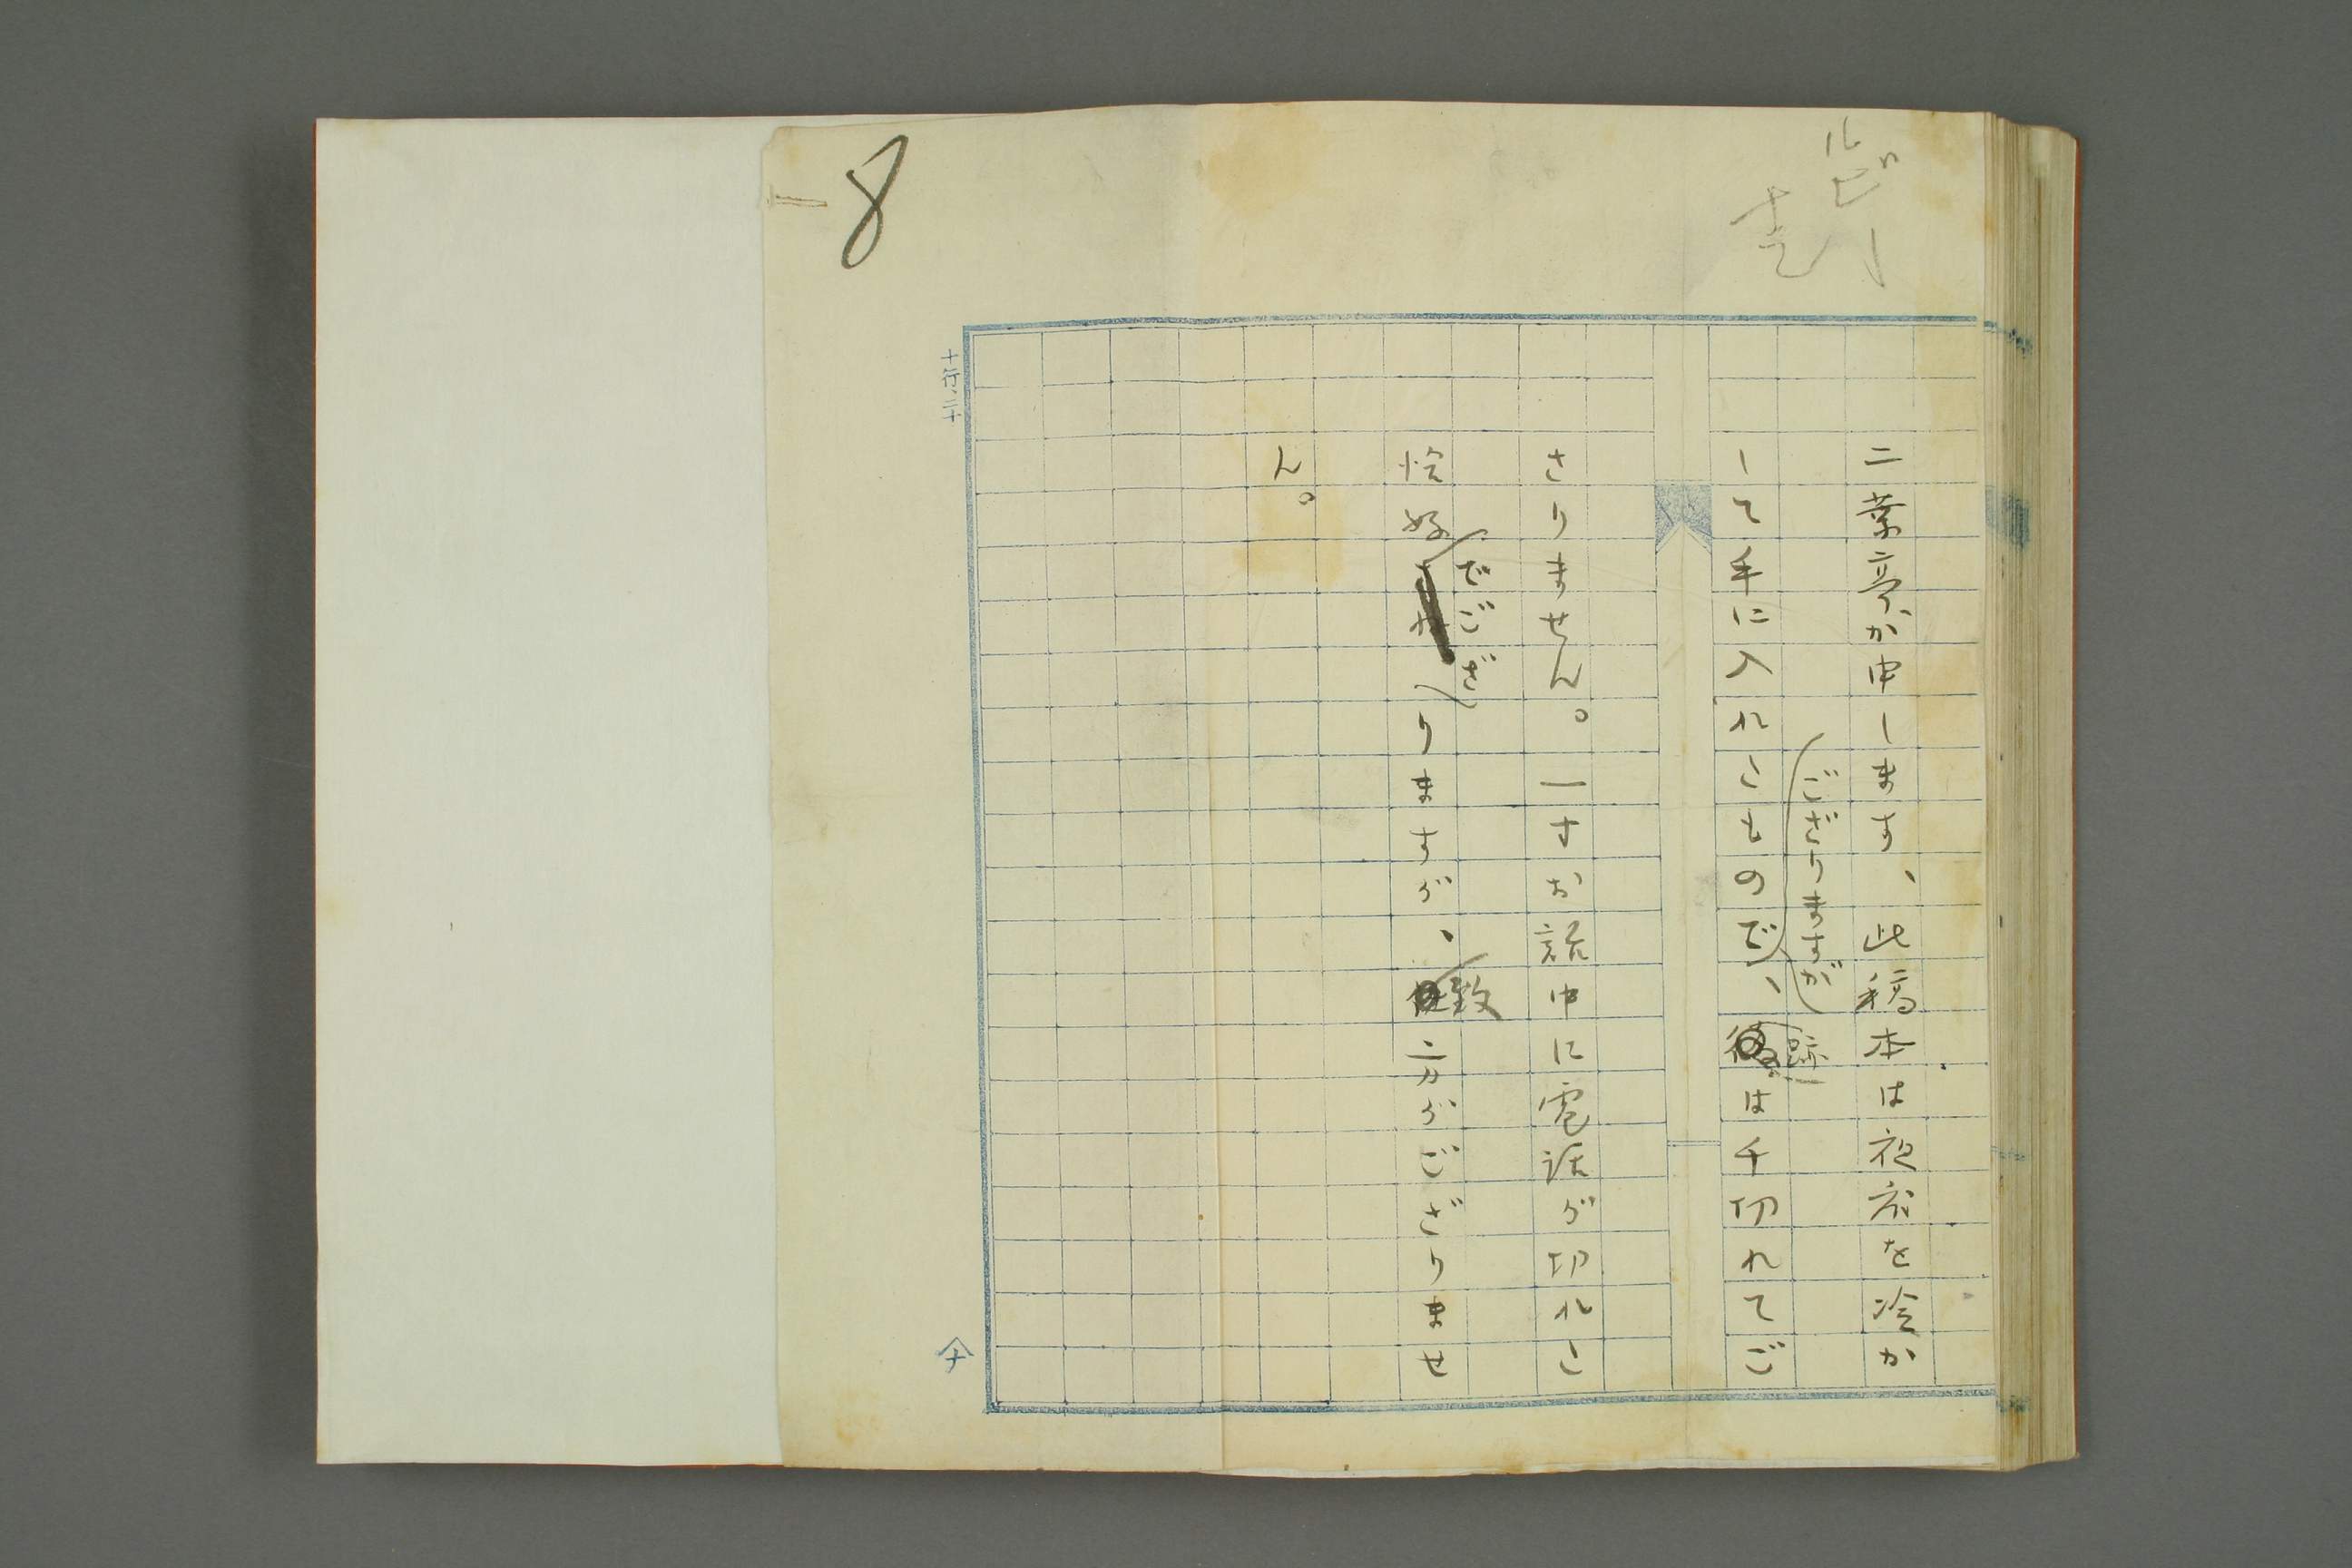 二葉亭が申します、此稿本は夜店を冷か
して手に入れたものでござりますが、跡は千切れてご
さりません。一寸お話中に電話が切れた
恰好でござりますが、致方がござりませ
ん。
8